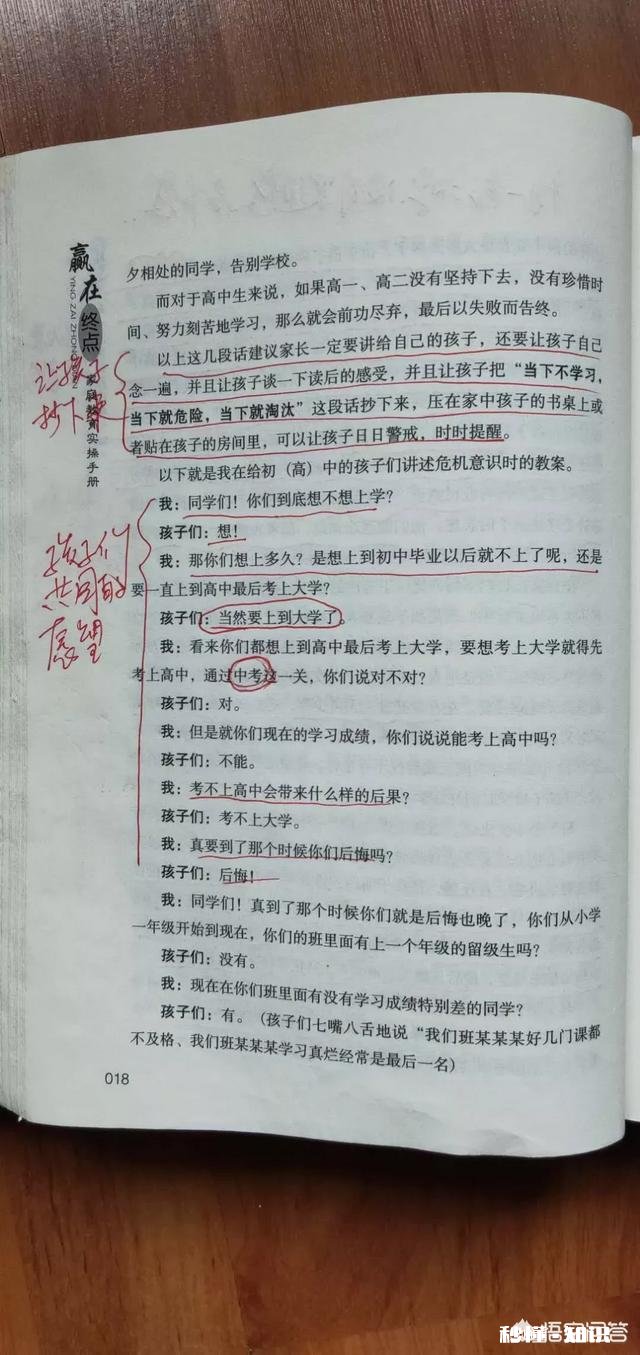 赢在终点
YING ZAI ZHONG DIAN
家庭教育实操手册
夕相处的同学，告别学校。
而对于高中生来说，如果高一、高二没有坚持下去，没有珍惜时
间、努力刻苦地学习，那么就会前功尽弃，最后以失败而告终。
以上这几段话建议家长一定要讲给自己的孩子，还要让孩子自己
念一遍，并且让孩子谈一下读后的感受，并且让孩子把“当下不学习，
当下就危险，当下就淘汰”这段话抄下来，压在家中孩子的书桌上或
者贴在孩子的房间里，可以让孩子日日警戒，时时提醒。
以下就是我在给初（高）中的孩子们讲述危机意识时的教案。
我：同学们！你们到底想不想上学？
孩子们：想！
我：那你们想上多久？是想上到初中毕业以后就不上了呢，还是
要一直上到高中最后考上大学？
孩子们：当然要上到大学了。
我：看来你们都想上到高中最后考上大学，要想考上大学就得先
考上高中，通过中考这一关，你们说对不对？
孩子们：对。
我：但是就你们现在的学习成绩，你们说说能考上高中吗？
孩子们：不能。
我：考不上高中会带来什么样的后果？
孩子们：考不上大学。
我：真要到了那个时候你们后悔吗？
孩子们：后悔！
我：同学们！真到了那个时候你们就是后悔也晚了，你们从小学
一年级开始到现在，你们的班里面有上一个年级的留级生吗？
孩子们：没有。
我：现在在你们班里面有没有学习成绩特别差的同学？
孩子们：有。（孩子们七嘴八舌地说“我们班某某某好几门课都
不及格、我们班某某某学习真烂经常是最后一名）
018
让孩子
抄下来
孩子们
共同的
愿望
悟空问答
秒懂·知识